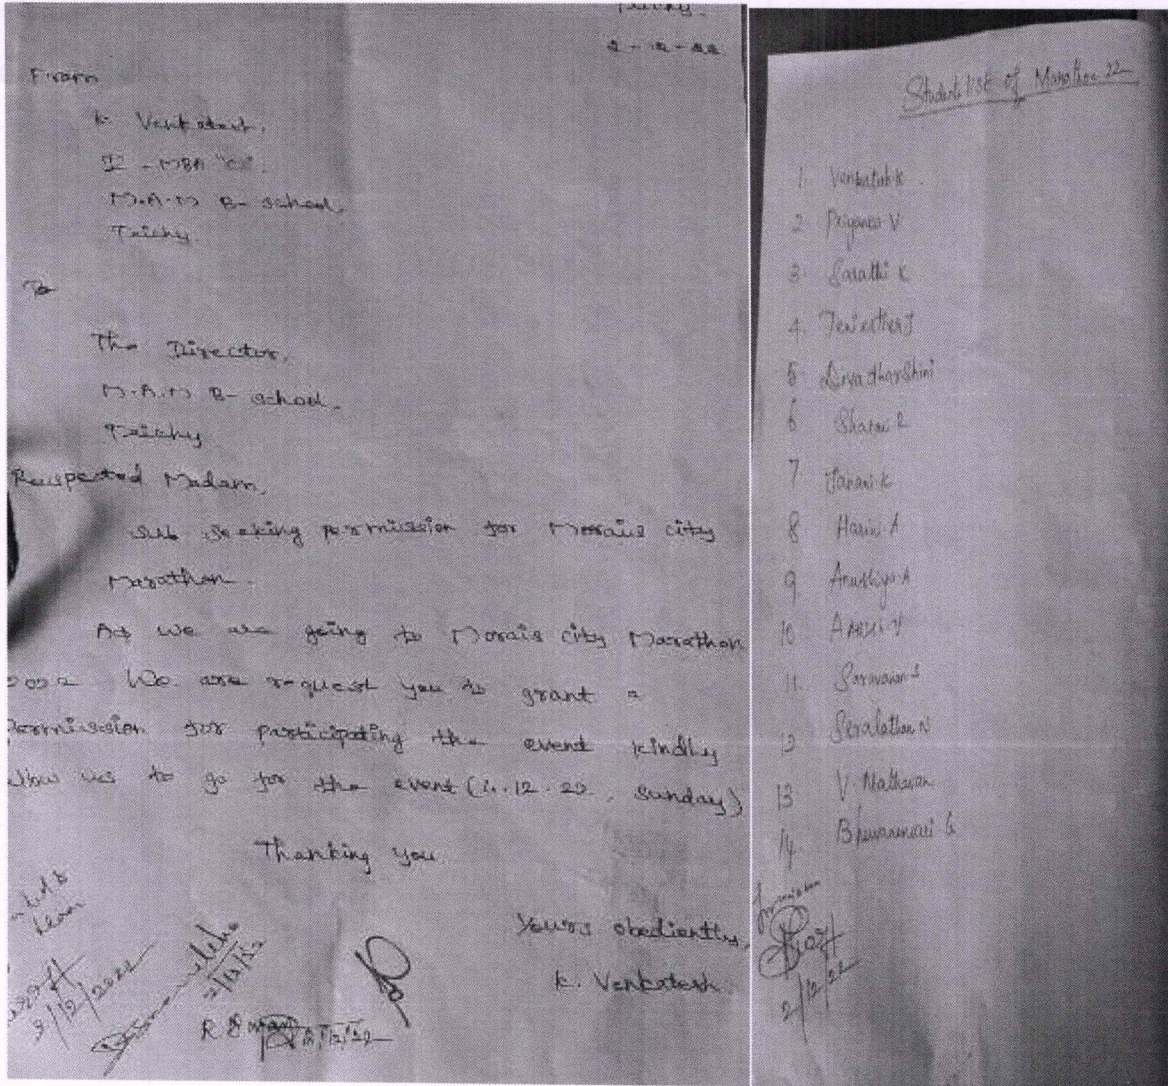 Trichy.
2-12-22
From
K. Venkatesh,
II - MBA
M.A.M B-school,
Trichy.
To
The Director,
M.A.M B-school.
Trichy
Respected Madam,
Sub Seeking permission for Morais city
Marathon.
As we are going to Morais city Marathon
2022 We are request you to grant a
permission for participating the event kindly
allow us to go for the event (4.12.22, Sunday)
Thanking you.
Yours obediently,
K. Venkatesh.
team
2/12/2022
2/12/22
Student list of Marathon 22
1. Venkatesh K
2 Priyanka V
3. Sarathi K
4.
5 Divadharshini
6 Sharan R
7 Janani K
8 Harini A
9 Anushiya A
10
11. Saravanan S
12 Seralathan N
13 V. Mathavan
14. Bhuvaneswari G
2/12/22